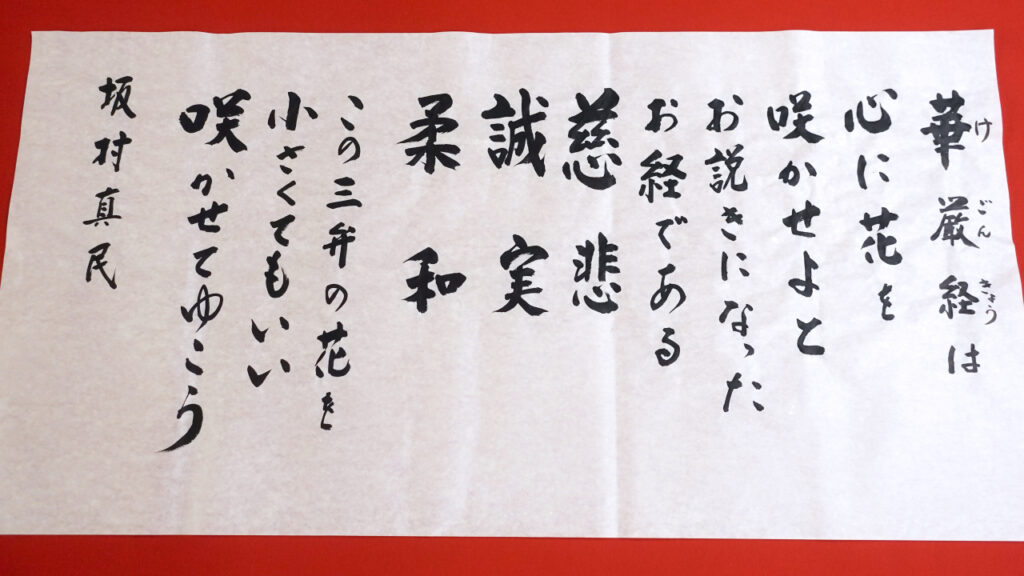 華厳経は
けごんきょう
心に花を
咲かせよと
お説きになった
お経である
慈悲
誠実
柔和
この三弁の花を
小さくてもいい
咲かせてゆこう
坂村真民